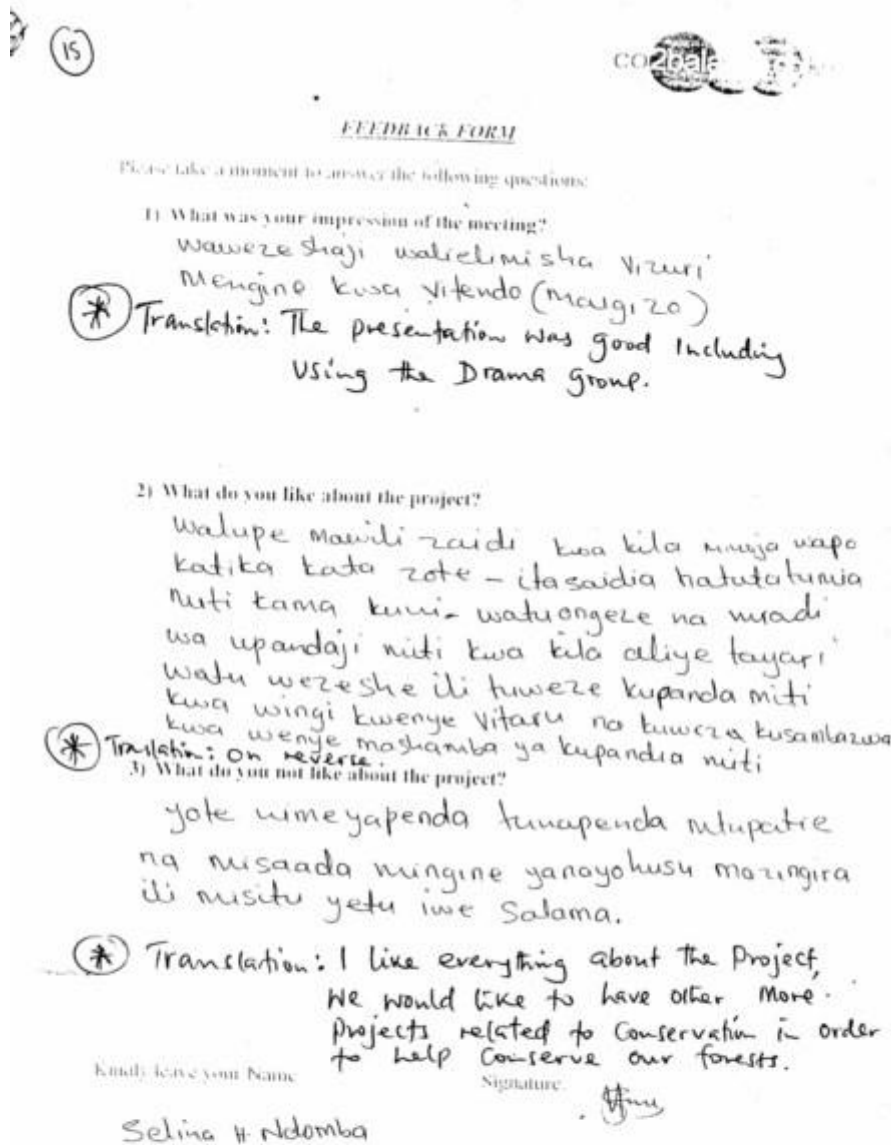 15
CO2bala
FEEDBACK FORM
Please take a moment to answer the following questions:
1) What was your impression of the meeting?
wawezeshaji walielimisha vizuri
mengine kwa vitendo (maigizo)
* Translation: The presentation was good Including
Using the Drama Group.
2) What do you like about the project?
Watupe mawili zaidi kwa kila mmoja wapo
katika kata zote - itasaidia hatutatumia
miti kama kuni - watuongeze na mradi
wa upandaji miti kwa kila aliye tayari
watu wezeshe ili tuweze kupanda miti
kwa wingi kwenye vitaru na kuweza kusambazwa
kwa wenye mashamba ya kupandia miti
* Translation: On reverse.
3) What do you not like about the project?
yote nimeyapenda tunapenda mtupatie
na misaada mingine yanayohusu mazingira
ili misitu yetu iwe Salama.
* Translation: I like everything about the Project,
We would like to have other More
Projects related to Conservation in order
to help Conserve our forests.
Kindly leave your Name
Signature.
Selina H. Ndomba